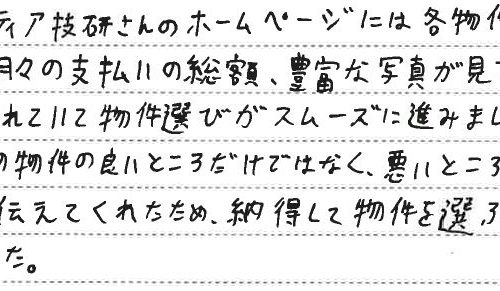 ィア技研さんのホームページには各物件
月々の支払いの総額、豊富な写真が見
れていて物件選びがスムーズに進みまし
物件の良いところだけではなく、悪いところ
伝えてくれたため、納得して物件を選
た。